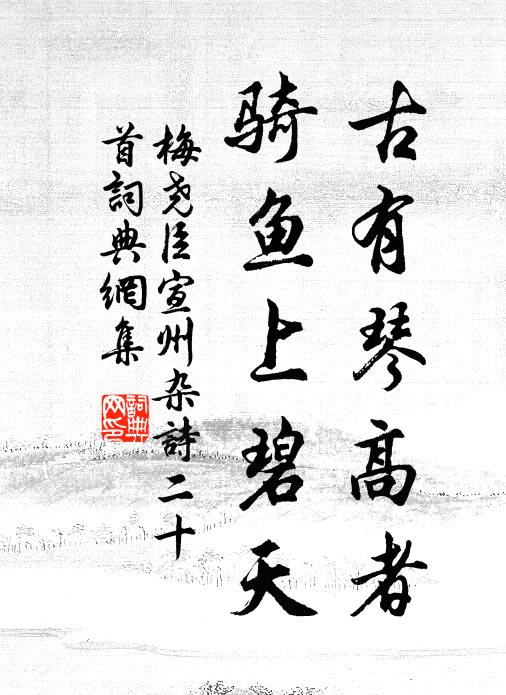 古有琴高者
骑鱼上碧天
梅尧臣宣州杂詩二十
首詞典網集
詞典
网印